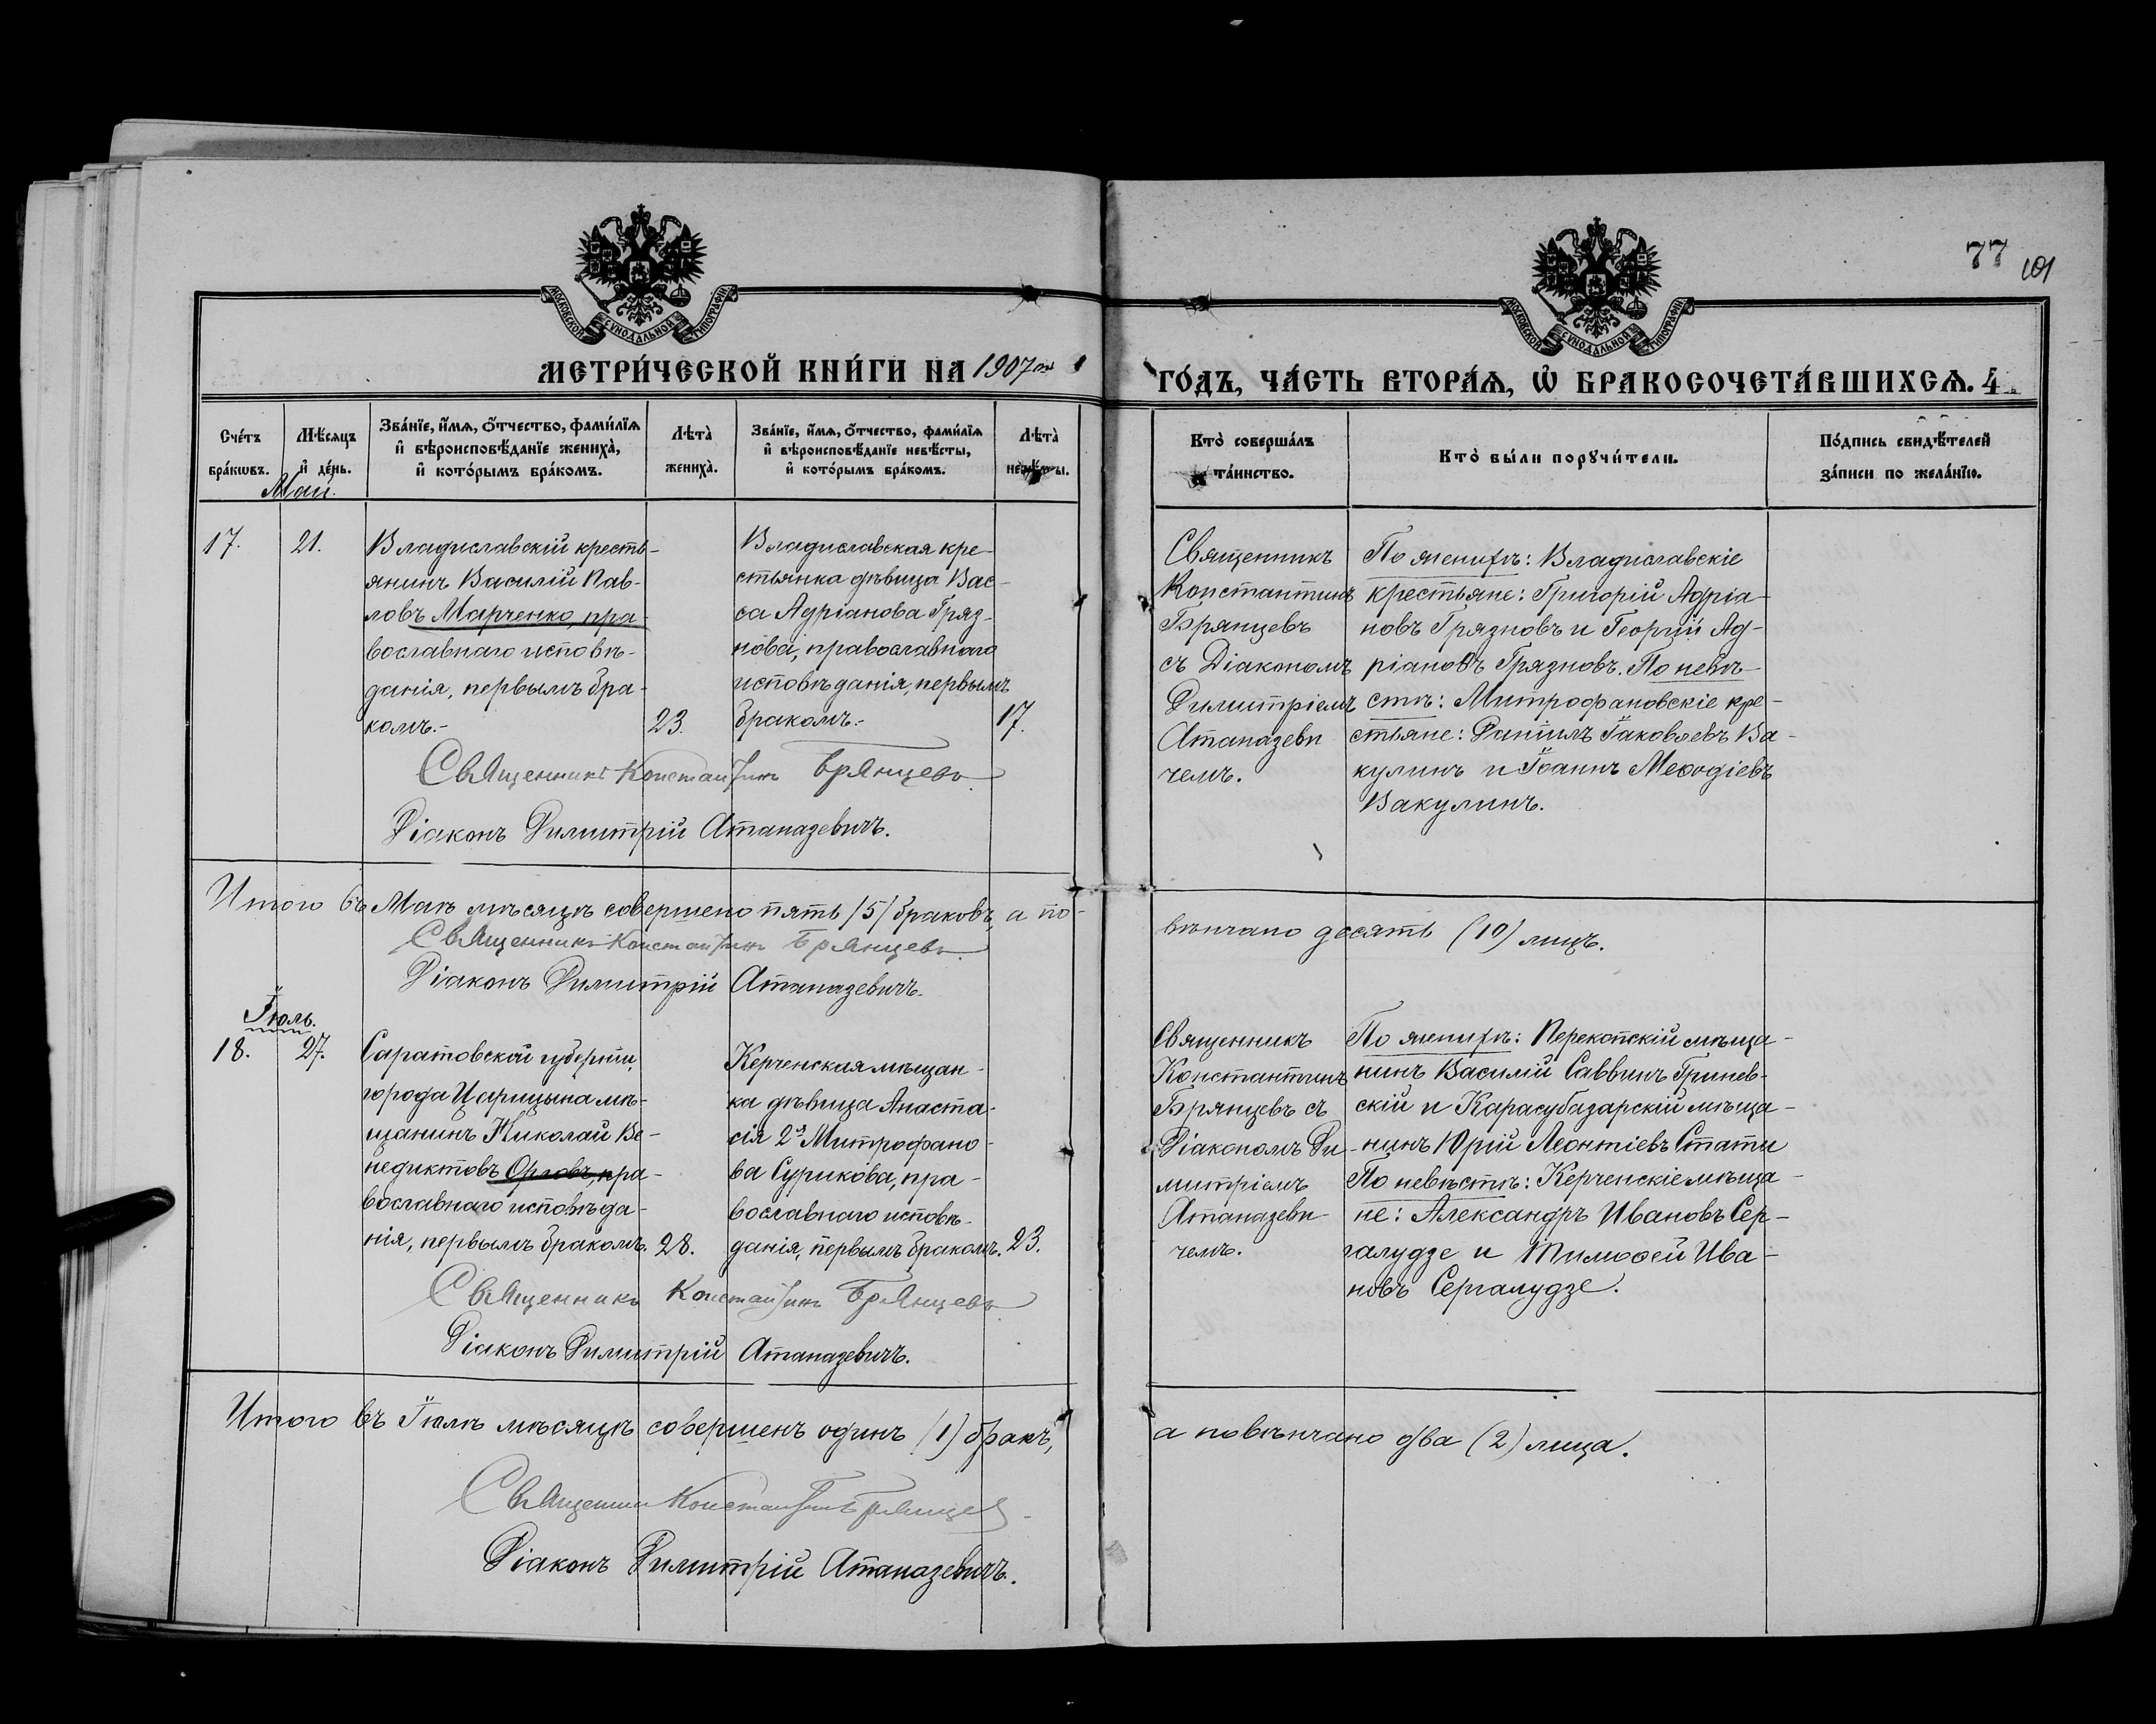 77 101
МОСКОВСКОЙ СУНОДАЛЬНОЙ ТИПОГРАФІИ
МОСКОВСКОЙ СУНОДАЛЬНОЙ ТИПОГРАФІИ
МЕТРИ́ЧЕСКОЙ КНИ́ГИ НА 1907 ой
ГО́ДЪ, ЧА́СТЬ ВТОРА́Ѧ, Ѡ҆ БРАКОСОЧЕТА́ВШИХСѦ. 4
Сче́тъ
бра́кѡвъ.
Мѣ́сяцъ
и҆ де́нь.
Зва́нїе, и҆́мѧ, ѻ҆́тчество, фами́лїѧ
и҆ вѣроисповѣ́данїе жениха̀,
и҆ кото́рымъ бра́комъ.
Лѣта̀
жениха̀.
Зва́нїе, и҆́мѧ, ѻ҆́тчество, фами́лїѧ
и҆ вѣроисповѣ́данїе невѣ́сты,
и҆ кото́рымъ бра́комъ.
Лѣта̀
невѣ́сты.
Кто̀ соверша́лъ
та́инство.
Кто̀ бы́ли порꙋчи́тели.
По́дпись свидѣ́телей
за́писи по жела́нїю.
Май.
17.
21.
Владиславскій кресть-
янинъ Василій Пав-
ловъ Марченко, пра-
вославнаго исповѣ-
данія, первымъ бра-
комъ.-
23.
Владиславская кре-
стьянка дѣвица Вас-
са Адріанова Гряз-
нова, православнаго
исповѣданія, первымъ
бракомъ.-
17.
Священникъ
Константинъ
Брянцевъ
съ Діакономъ
Димитріемъ
Атаназеви
чемъ.
По женихѣ: Владиславскіе
крестьяне: Григорій Адріа-
новъ Грязновъ и Георгій Ад-
ріановъ Грязновъ. По невѣ-
стѣ: Митрофановскіе кре-
стьяне: Даніилъ Іаковлевъ Ва-
кулинъ и Іоаннъ Меѳодіевъ
Вакулинъ.
Священникъ Константинъ Брянцевъ
Діаконъ Димитрій Атаназевичъ.
Итого въ Маѣ мѣсяцѣ совершено пять (5) браковъ, а по-
вѣнчано десять (10) лицъ.
Священникъ Константинъ Брянцевъ.
Діаконъ Димитрій Атаназевичъ.
Іюль.
18.
27.
Саратовской губерніи,
города Царицына мѣ-
щанинъ Николай Ве-
недиктовъ Орловъ, пра-
вославнаго исповѣда-
нія, первымъ бракомъ.
28.
Керченская мѣщан-
ка дѣвица Анаста-
сія 2я Митрофано-
ва Сурикова, пра-
вославнаго исповѣ-
данія, первымъ бракомъ.
23.
Священникъ
Константинъ
Брянцевъ съ
Діакономъ Ди-
митріемъ
Атаназеви-
чемъ.
По женихѣ: Перекопскій мѣща-
нинъ Василій Саввинъ Гринев-
скій и Карасубазарскій мѣща-
нинъ Юрій Леонтіевъ Стати
По невѣстѣ: Керченскіе мѣща-
не: Александръ Ивановъ Сер-
галудзе и Тимоѳей Ива-
новъ Сергалудзе.
Священникъ Константинъ Брянцевъ
Діаконъ Димитрій Атаназевичъ.
Итого въ Іюлѣ мѣсяцѣ совершенъ одинъ (1) бракъ,
а повѣнчано два (2) лица.
Священник Константинъ Брянцев
Діаконъ Димитрій Атаназевичъ.